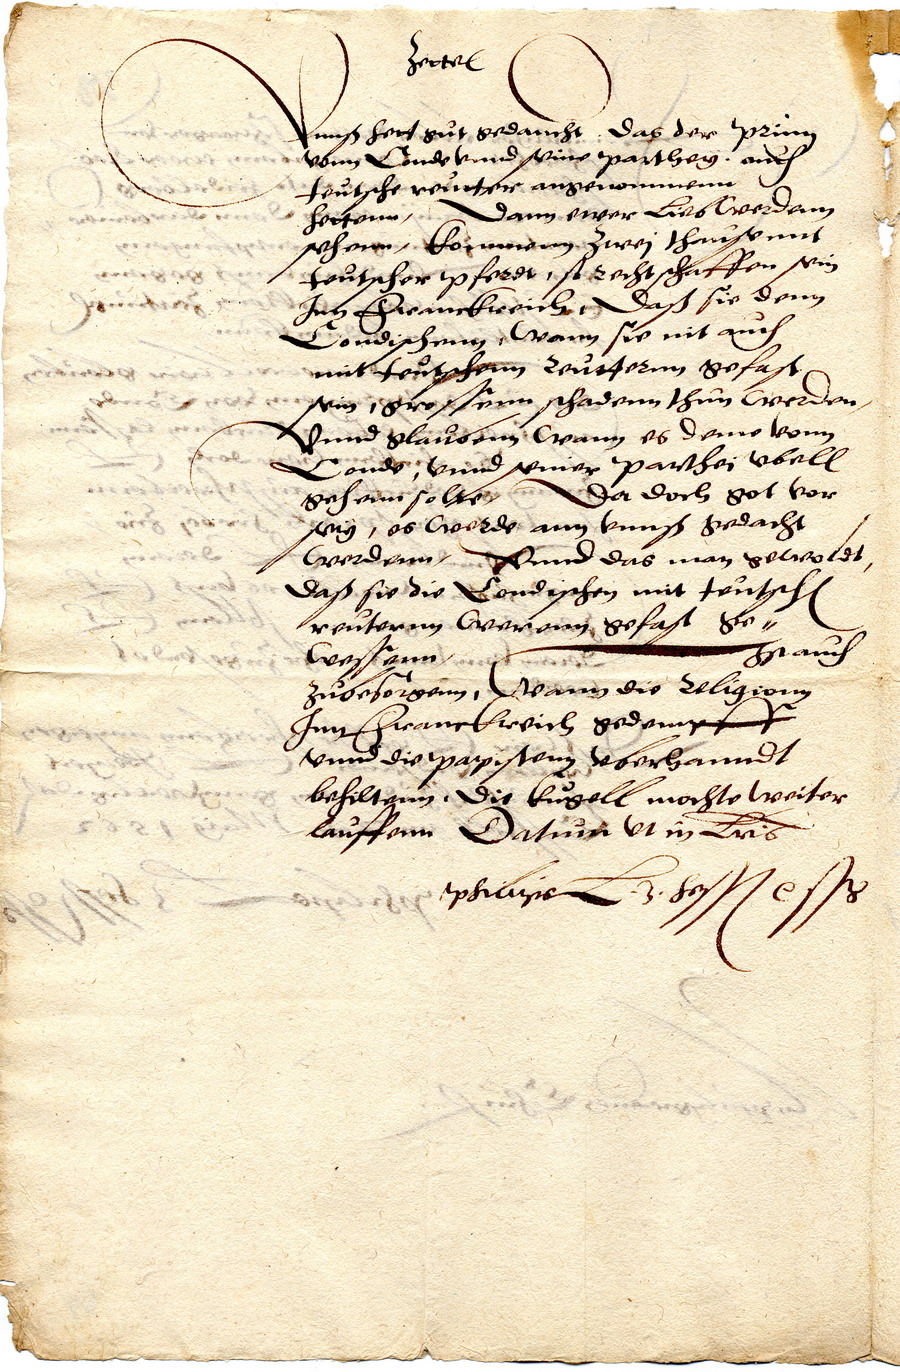 Zettel
Vnnß hett gut gedaucht das der Prinn
vonn Conde vnnd seine parthey auch
teutsche reutter angenommenn
hettenn, Dann ewer Lieb werdenn
sehenn, kommenn zwei thausennt
teutscher pferdt, so rechtschaffen sein
Inn Franckreich, Daß sie denn
Condischenn, Wann sie nit auch
mit teutschenn Reutternn gefast
sein, grossenn schadenn thun werden,
Vnnd glaubenn wann es deme vonn
Conde, vnnd seiner parthei vbell
gehenn solte, Da doch got vor
sey, es werde ann vnnß gedacht
werdenn, Vnnd das man gewoldt,
daß sie die Condischen mit teutsch
reuternn werenn gefast ge=
wessenn, Ist auch
zubesorgenn, Wann die Religionn
Inn Franckreich gedempfft
vnnd die papistenn vberhanndt
behiltenn, Die kugell mochte weiter
lauffenn Datum vt in Lris
Philips L. z. Hessen ssz